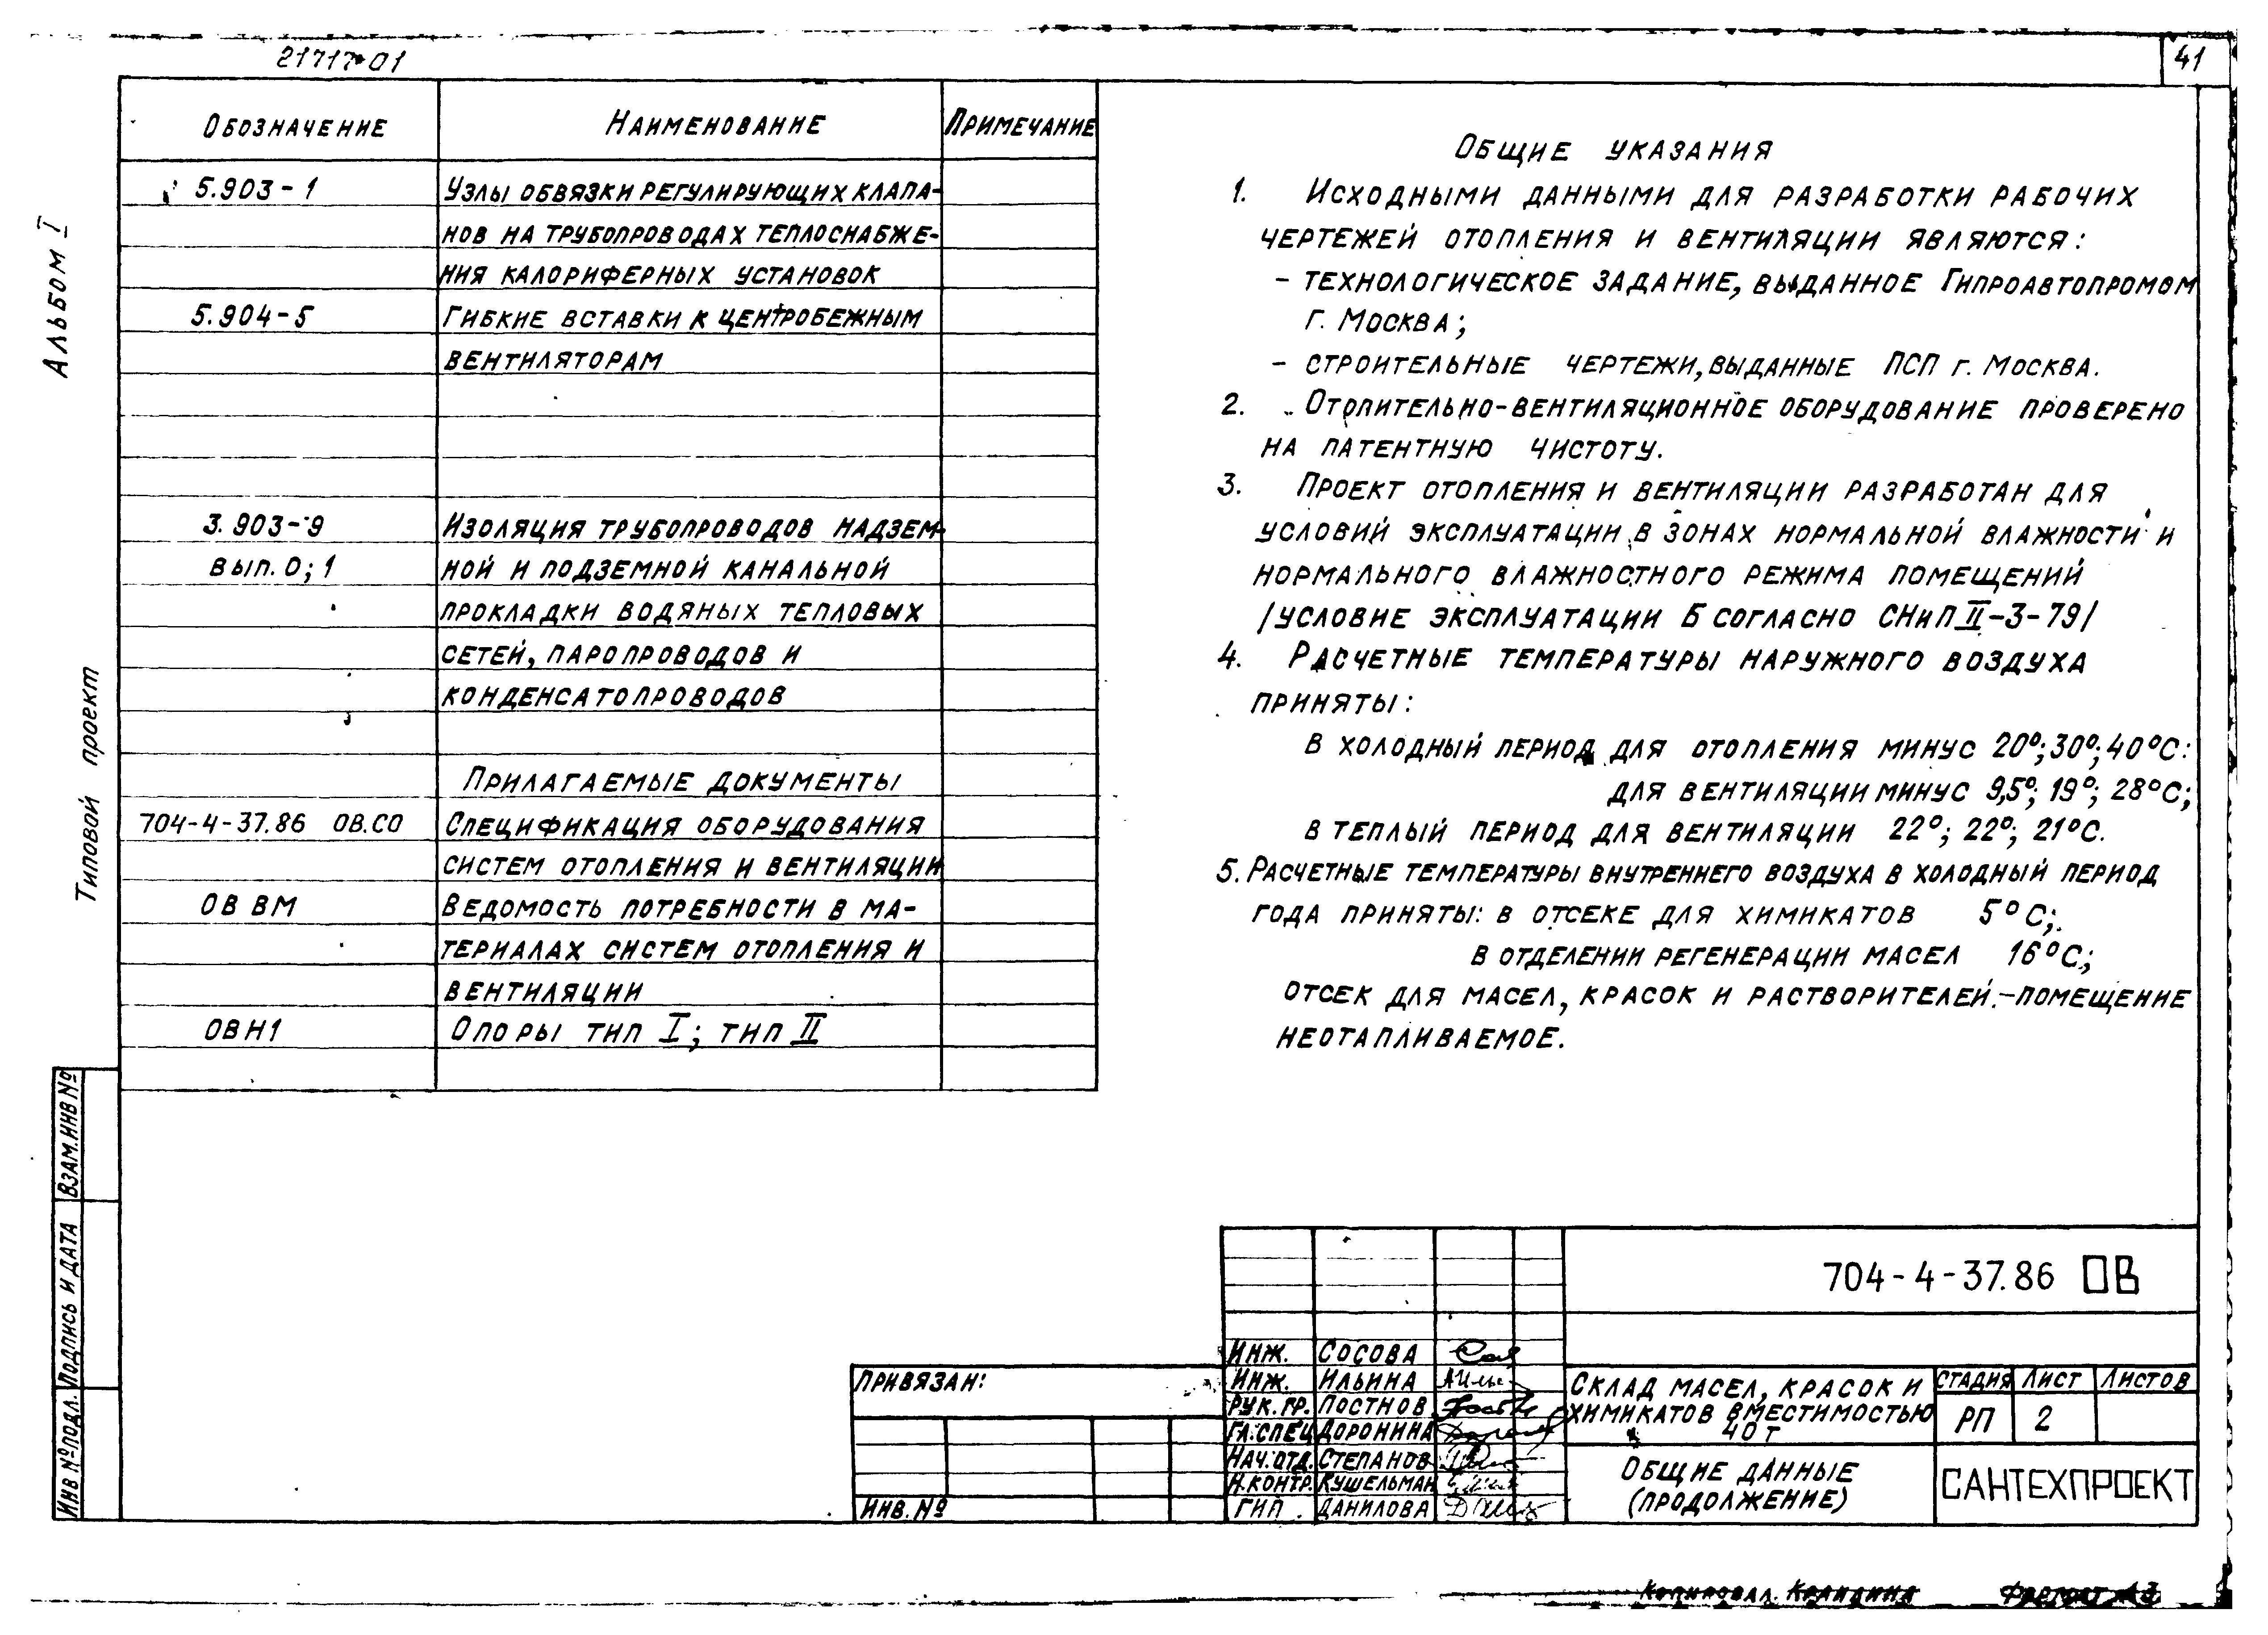 21717-01
41
Альбом I
Типовой проект
Обозначение Наименование Примечание
5.903-1 Узлы обвязки регулирующих клапа-
нов на трубопроводах теплоснабже-
ния калориферных установок
5.904-5 Гибкие вставки к центробежным
вентиляторам
3.903-9 Изоляция трубопроводов надзем-
вып. 0; 1 ной и подземной канальной
прокладки водяных тепловых
сетей, паропроводов и
конденсатопроводов
Прилагаемые документы
704-4-37.86 ОВ.СО Спецификация оборудования
систем отопления и вентиляции
ОВ ВМ Ведомость потребности в ма-
териалах систем отопления и
вентиляции
ОВН1 Опоры тип I; тип II
Общие указания
1. Исходными данными для разработки рабочих
чертежей отопления и вентиляции являются:
- технологическое задание, выданное Гипроавтопромом
г. Москва;
- строительные чертежи, выданные ПСП г. Москва.
2. Отопительно-вентиляционное оборудование проверено
на патентную чистоту.
3. Проект отопления и вентиляции разработан для
условий эксплуатации в зонах нормальной влажности и
нормального влажностного режима помещений
/условие эксплуатации Б согласно СНиП II-3-79/
4. Расчетные температуры наружного воздуха
приняты:
в холодный период для отопления минус 20°; 30°; 40°С:
для вентиляции минус 9,5°; 19°; 28°С;
в теплый период для вентиляции 22°; 22°; 21°С.
5. Расчетные температуры внутреннего воздуха в холодный период
года приняты: в отсеке для химикатов 5°С;
в отделении регенерации масел 16°С;
отсек для масел, красок и растворителей.-помещение
неотапливаемое.
Взам. инв №
Подпись и дата
Инв № подл.
Привязан:
Инв. №
704-4-37.86 ОВ
Инж. Сосова
Инж. Ильина
Рук. гр. Постнов
Гл. спец Доронина
Нач. отд. Степанов
Н. контр. Кушельман
ГИП Данилова
Склад масел, красок и
химикатов вместимостью
40 т
Стадия Лист Листов
РП 2
Общие данные
(продолжение)
САНТЕХПРОЕКТ
Копировал.
Формат А3